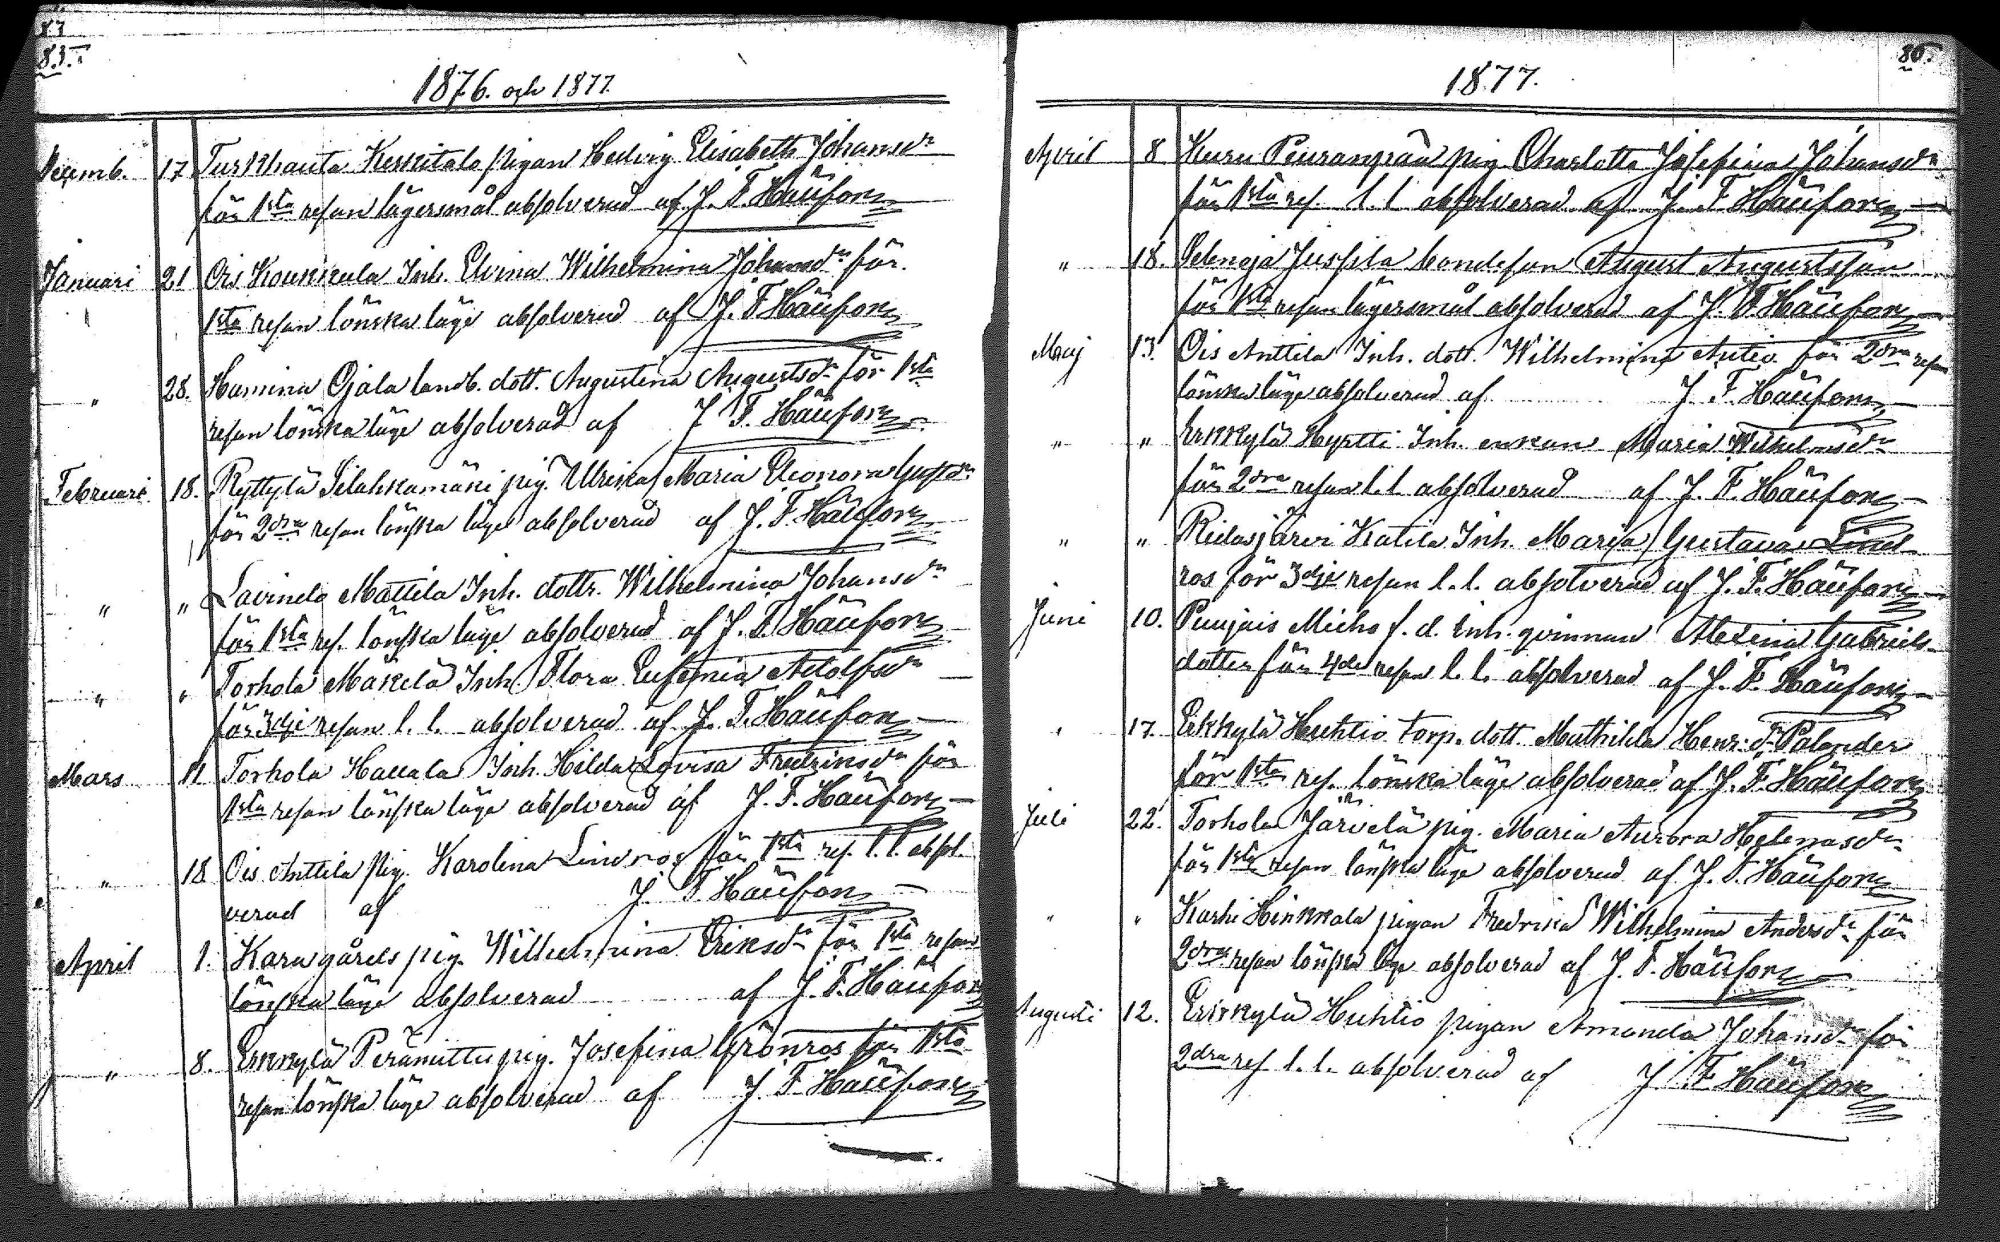 83
83.
1876. och 1877.
Decemb. 17 Turkhauta Keskitalo pigan Hedvig Elisabeth Johansdr
för 1sta resan lägersmål absolverad af J. F. Häüfors
Januari 21 Ois Koukkula Inh. Elvina Wilhelmina Johansdr för
1sta resan lönskaläge absolverad af J. F. Häüfors
" 28. Humina Ojala landb. dott. Augustina Augustsdr för 1sta
resan lönskaläge absolverad af J. F. Häüfors
Februari 18. Ryttylä Silakkamäki pig. Ulrika Maria Eleonora Gustfdr
för 2dra resan lönska läge absolverad af J. F. Häüfors
" " Lavinto Mattila Inh. dottr. Wilhelmina Johansdr
för 1sta res. lönska läge absolverad af J. F. Häüfors
" " Torhola Mäkelä Inh. Flora Eufemia Adolfsdr
för 3dje resan l. l. absolverad af J. F. Häüfors
Mars 11 Torhola Haccala Inh. Hilda Lovisa Fredriksdr för
1sta resan lönska läge absolverad af J. F. Häüfors
" 18 Ois Anttila pig. Karolina Lindros för 1sta res. l. l. absol-
verad af J. F. Häüfors
April 1. Kara gårds pig. Wilhelmina Eriksdr för 1sta resan
lönska läge absolverad af J. F. Häüfors
" 8. Erkkylä Perämittu pig. Josefina Grönroos för 1sta
resan lönska läge absolverad af J. F. Häüfors
80.
1877.
April 8 Kuru Peuranpää pig. Charlotta Josefina Johansdr
för 1sta res. l. l. absolverad af J. F. Häüfors
" 18. Juspila bondeson August Augustsson
för 1sta resan lägersmål absolverad af J. F. Häüfors
Maj 13. Ois Anttila Inh. dott. Wilhelmina Antio för 2dra resan
lönska läge absolverad af J. F. Häüfors
" " Erkkylä Hyrtti Inh. enkan Maria Wilhelmsdr
för 2dra resan l. l. absolverad af J. F. Häüfors
" " Ridasjärvi Katila Inh. Maria Gustava Lind-
ros för 3dje resan l. l. absolverad af J. F. Häüfors
Juni 10. Puujais Micho f. d. Inh. qvinnan Alexina Gabriels-
dotter för 4de resan l. l. absolverad af J. F. Häüfors
" 17. Erkkylä Huhtio torp. dott. Mathilda Henr. dr Palander
för 1sta res. lönska läge absolverad af J. F. Häüfors
Juli 22. Torhola Järvelä pig. Maria Aurora Helenasdr
för 1sta resan lönska läge absolverad af J. F. Häüfors
" " Karhi Hinkkala pigan Fredrika Wilhelmina Andersdr för
2dra resan lönska läge absolverad af J. F. Häüfors
Augusti 12. Erkkylä Huhtio pigan Amanda Johansdr för
2dra res. l. l. absolverad af J. F. Häüfors